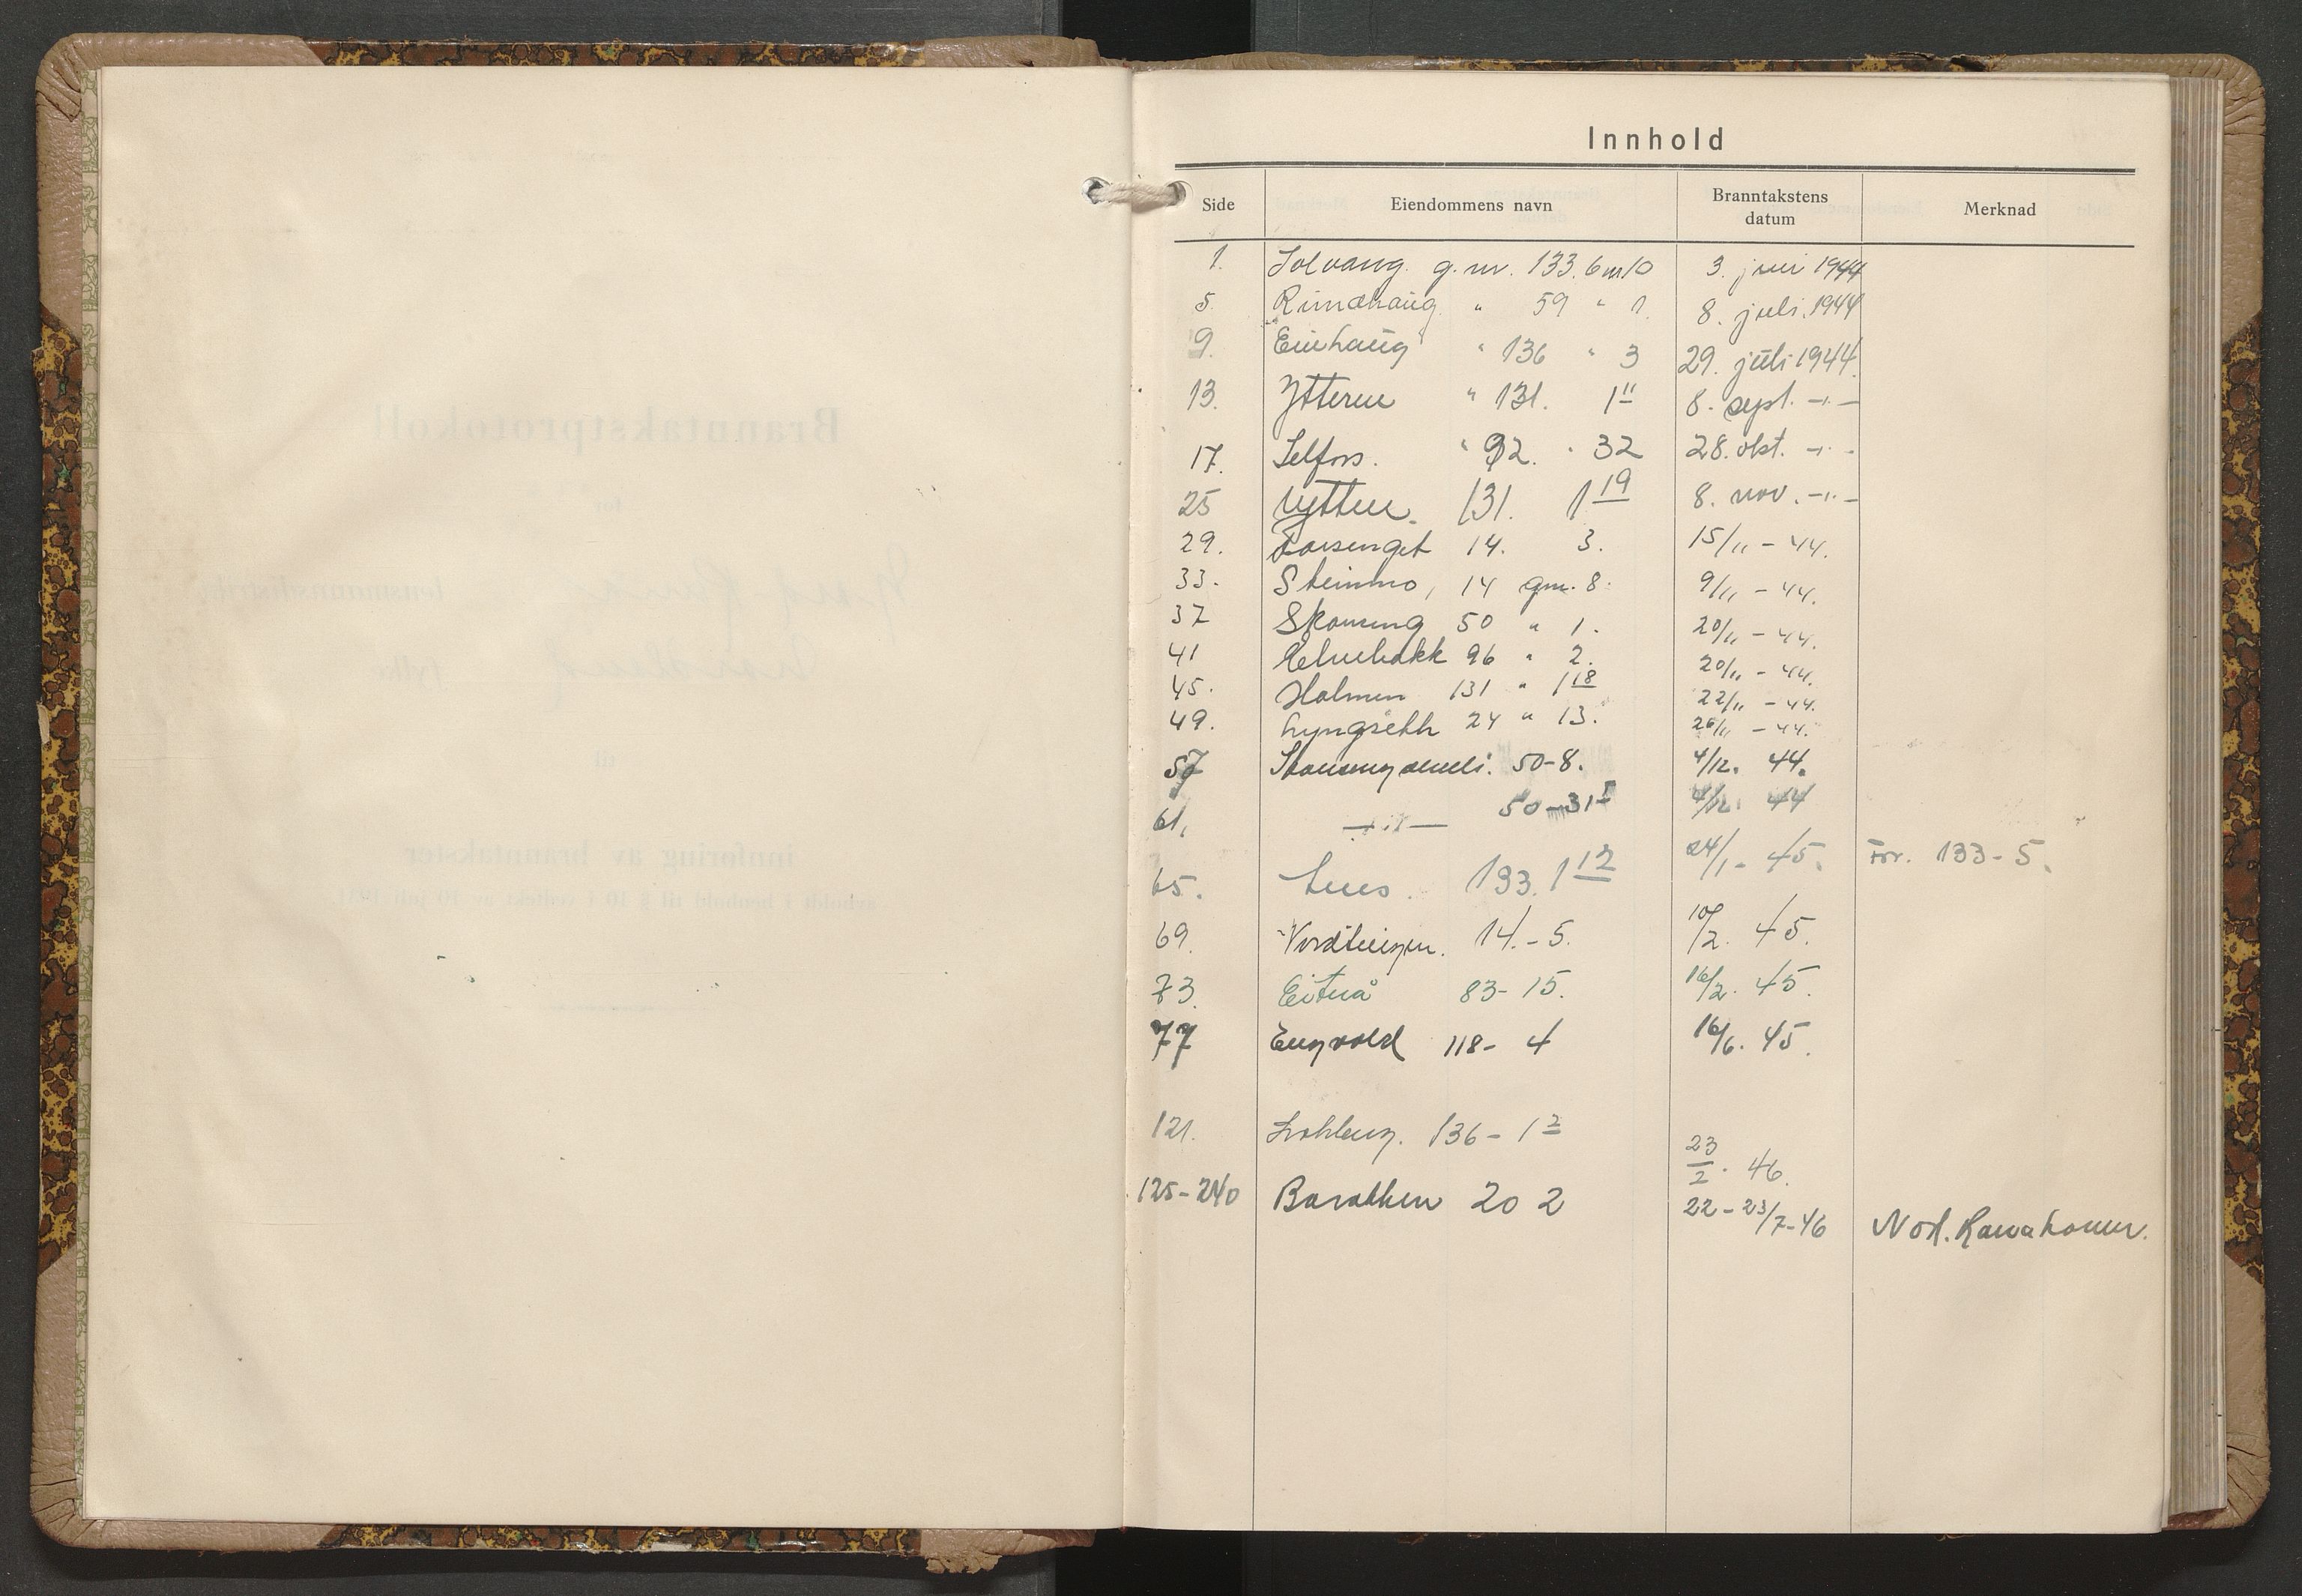 Innhold
Side Eiendommens navn Branntakstens datum Merknad
1. Solvang. g.nr. 133. bnr 10 3. juni 1944
5. Rundhaug " 59 " 1. 8. juli 1944
9. Einhaug " 136 " 3 29. juli 1944.
13. Ytteren " 131. 1 11 8. sept. -"-
17. Selfors. " 92. " 32 28. okt. -"-
25 Ytteren. 131. 1 19 8. nov. -"-
29. 14. 3. 15/11 - 44.
33. Steinmo, 14 gnr. 8. 9/11 - 44.
37 Skonseng 50 " 1. 20/11 - 44.
41 96 " 2. 20/11 - 44.
45. Holmen 131 " 1 18 22/11 - 44.
49. Lyngseth 24 " 13. 26/11 - 44.
57 50-8. 4/12. 44.
61, -"- 50-31 4/12. 44
65. 133. 1 12 24/1 - 45. 133-5.
69. 14.-5. 10/2. 45.
73. Eiteraa 83-15. 16/2. 45.
77 Engvold 118- 4 16/6. 45.
121. 136-1 2 23/2. 46.
125-240 20 2 22-23/7-46 Nord. Rana komm.
Branntakstprotokoll
for
Nord Rana lensmannsdistrikt
Nordland fylke
til
innføring av branntakster